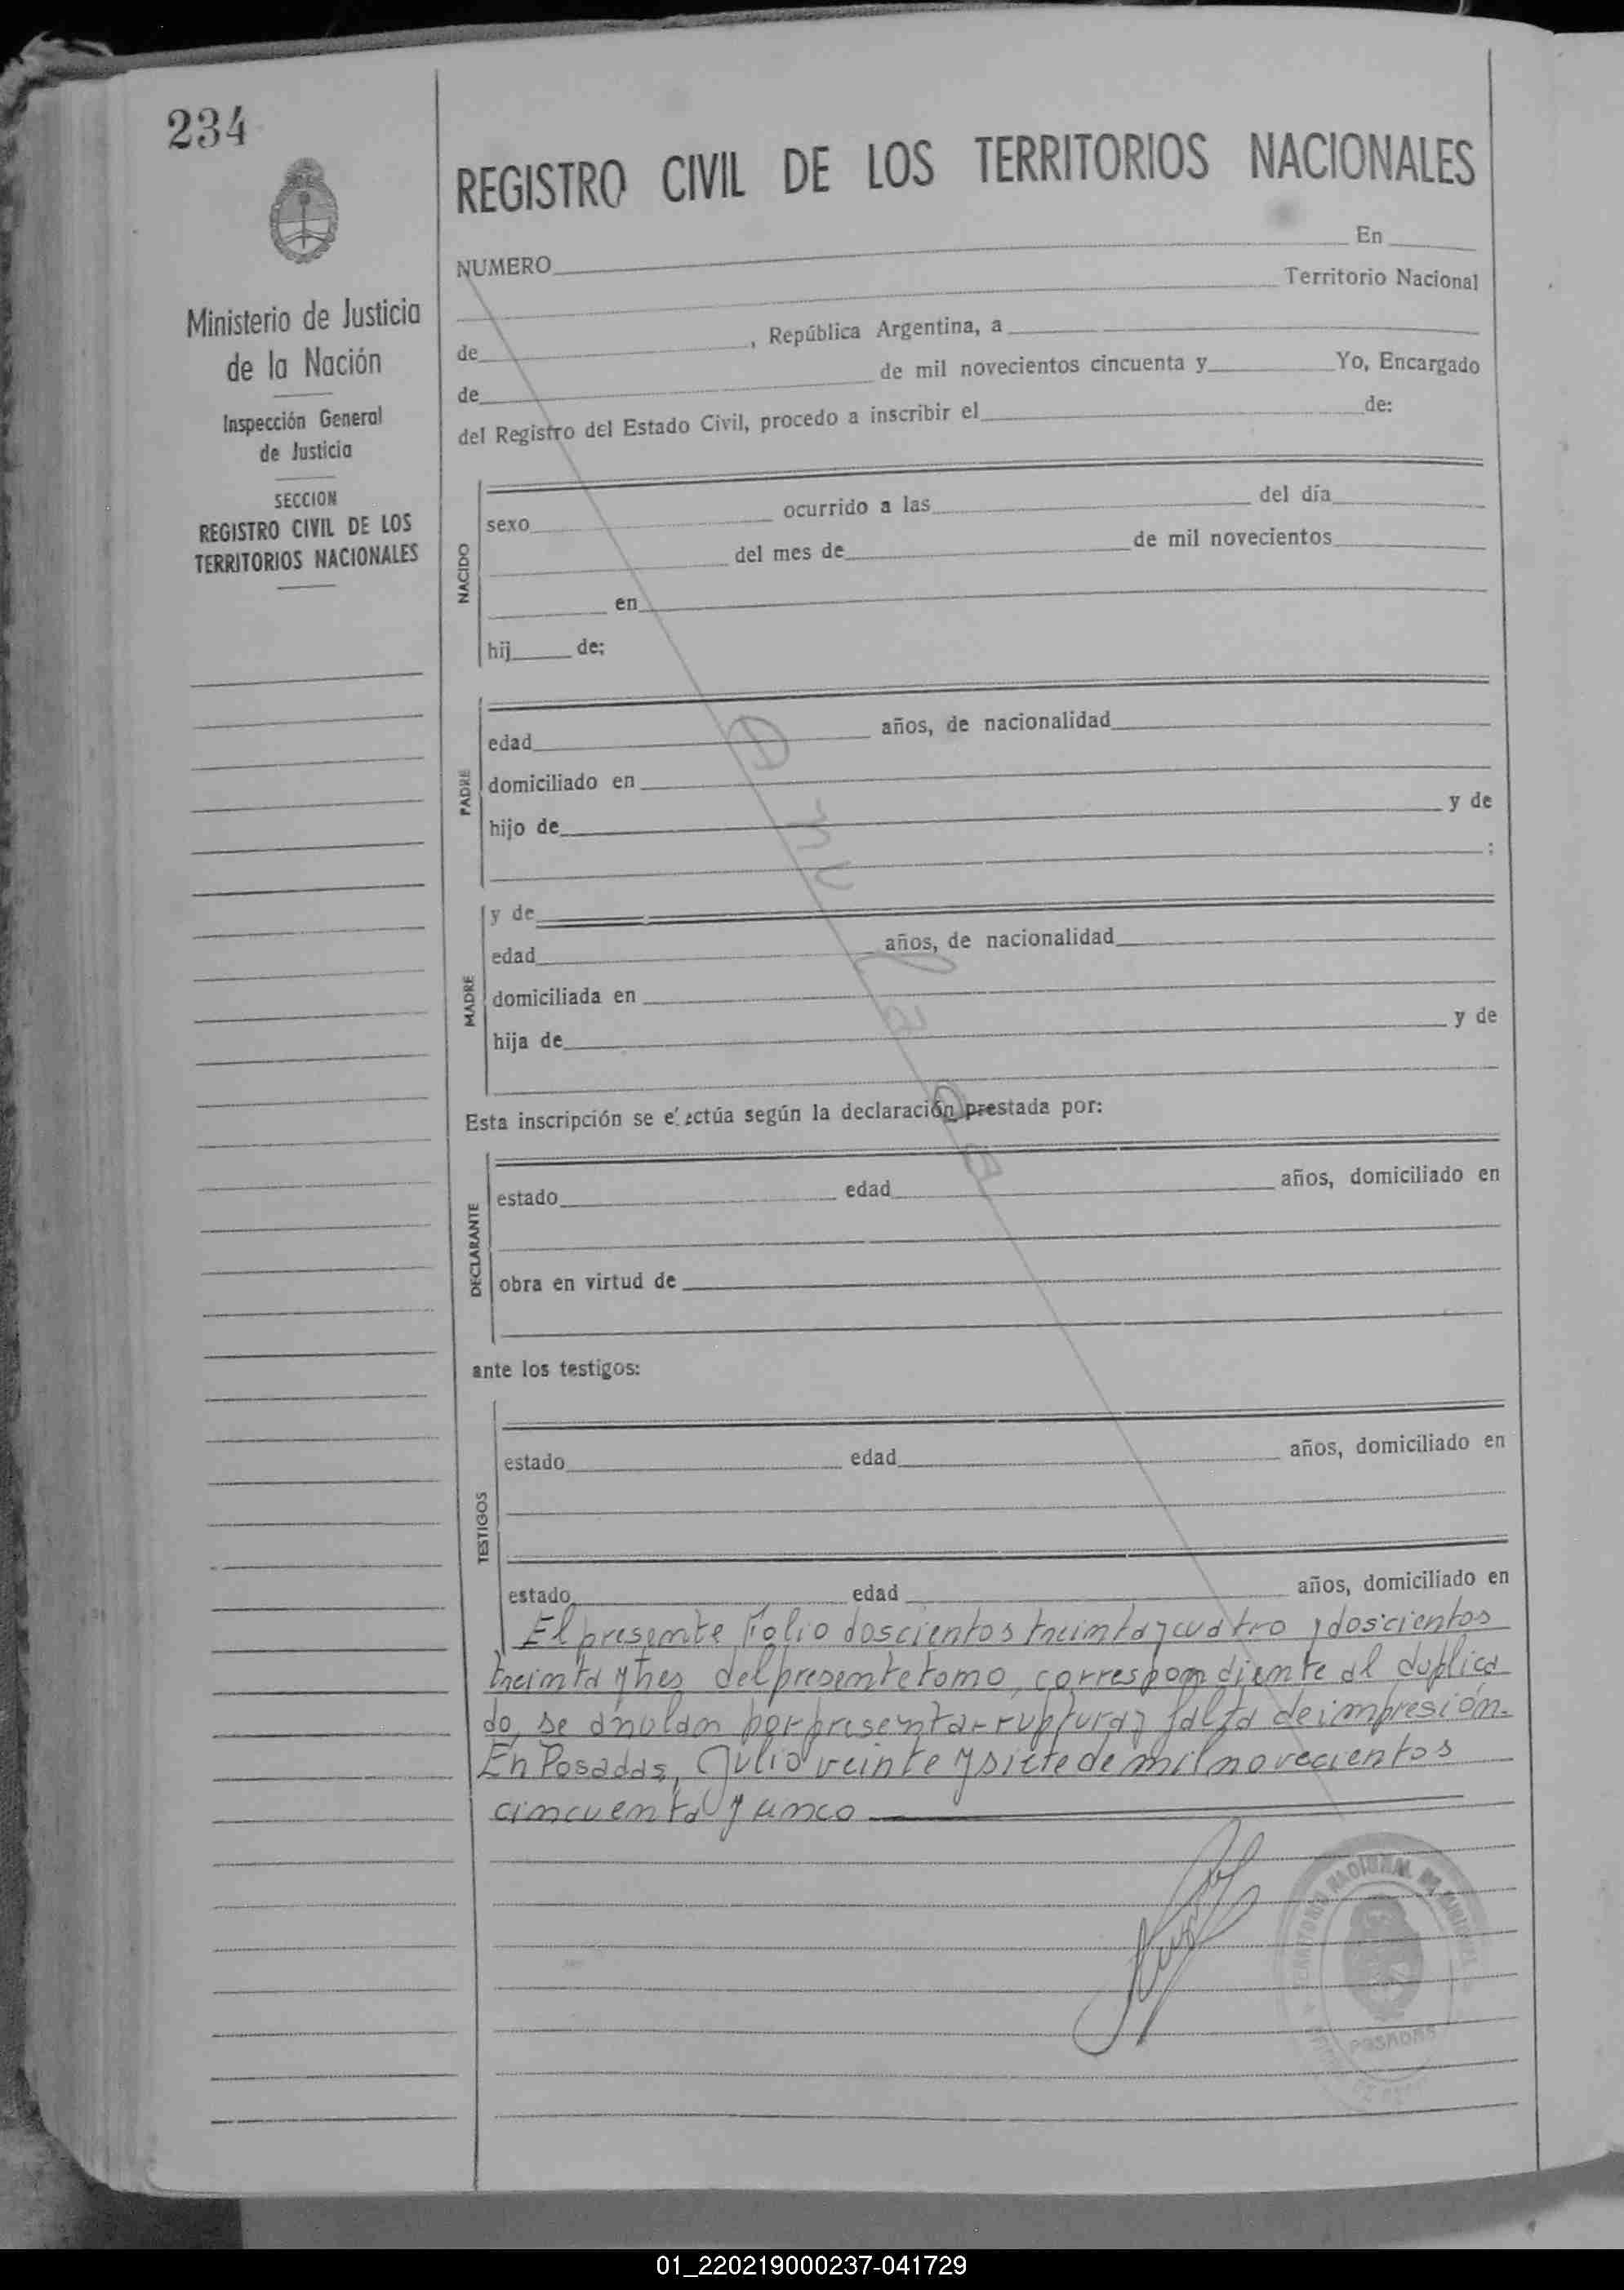 234
REGISTRO CIVIL DE LOS TERRITORIOS NACIONALES
Ministerio de Justicia
de la Nación
Inspección General
de Justicia
SECCION
REGISTRO CIVIL DE LOS
TERRITORIOS NACIONALES
NUMERO En
Territorio Nacional
de , República Argentina, a
de de mil novecientos cincuenta y Yo, Encargado
del Registro del Estado Civil, procedo a inscribir el de:
NACIDO
sexo ocurrido a las del día
del mes de de mil novecientos
en
hij de:
PADRE
edad años, de nacionalidad
domiciliado en
hijo de y de
;
MADRE
y de
edad años, de nacionalidad
domiciliada en
hija de y de
Anulada
Esta inscripción se efectúa según la declaración prestada por:
DECLARANTE
estado edad años, domiciliado en
obra en virtud de
ante los testigos:
TESTIGOS
estado edad años, domiciliado en
estado edad años, domiciliado en
El presente Folio doscientos treinta y cuatro y doscientos
treinta y tres del presente tomo, correspondiente al duplica
do, se anulan por presentar ruptura y falta de impresión.
En Posadas, Julio veinte y siete de mil novecientos
cincuenta y cinco
TERRITORIO NACIONAL DE MISIONES
POSADAS
01_220219000237-041729